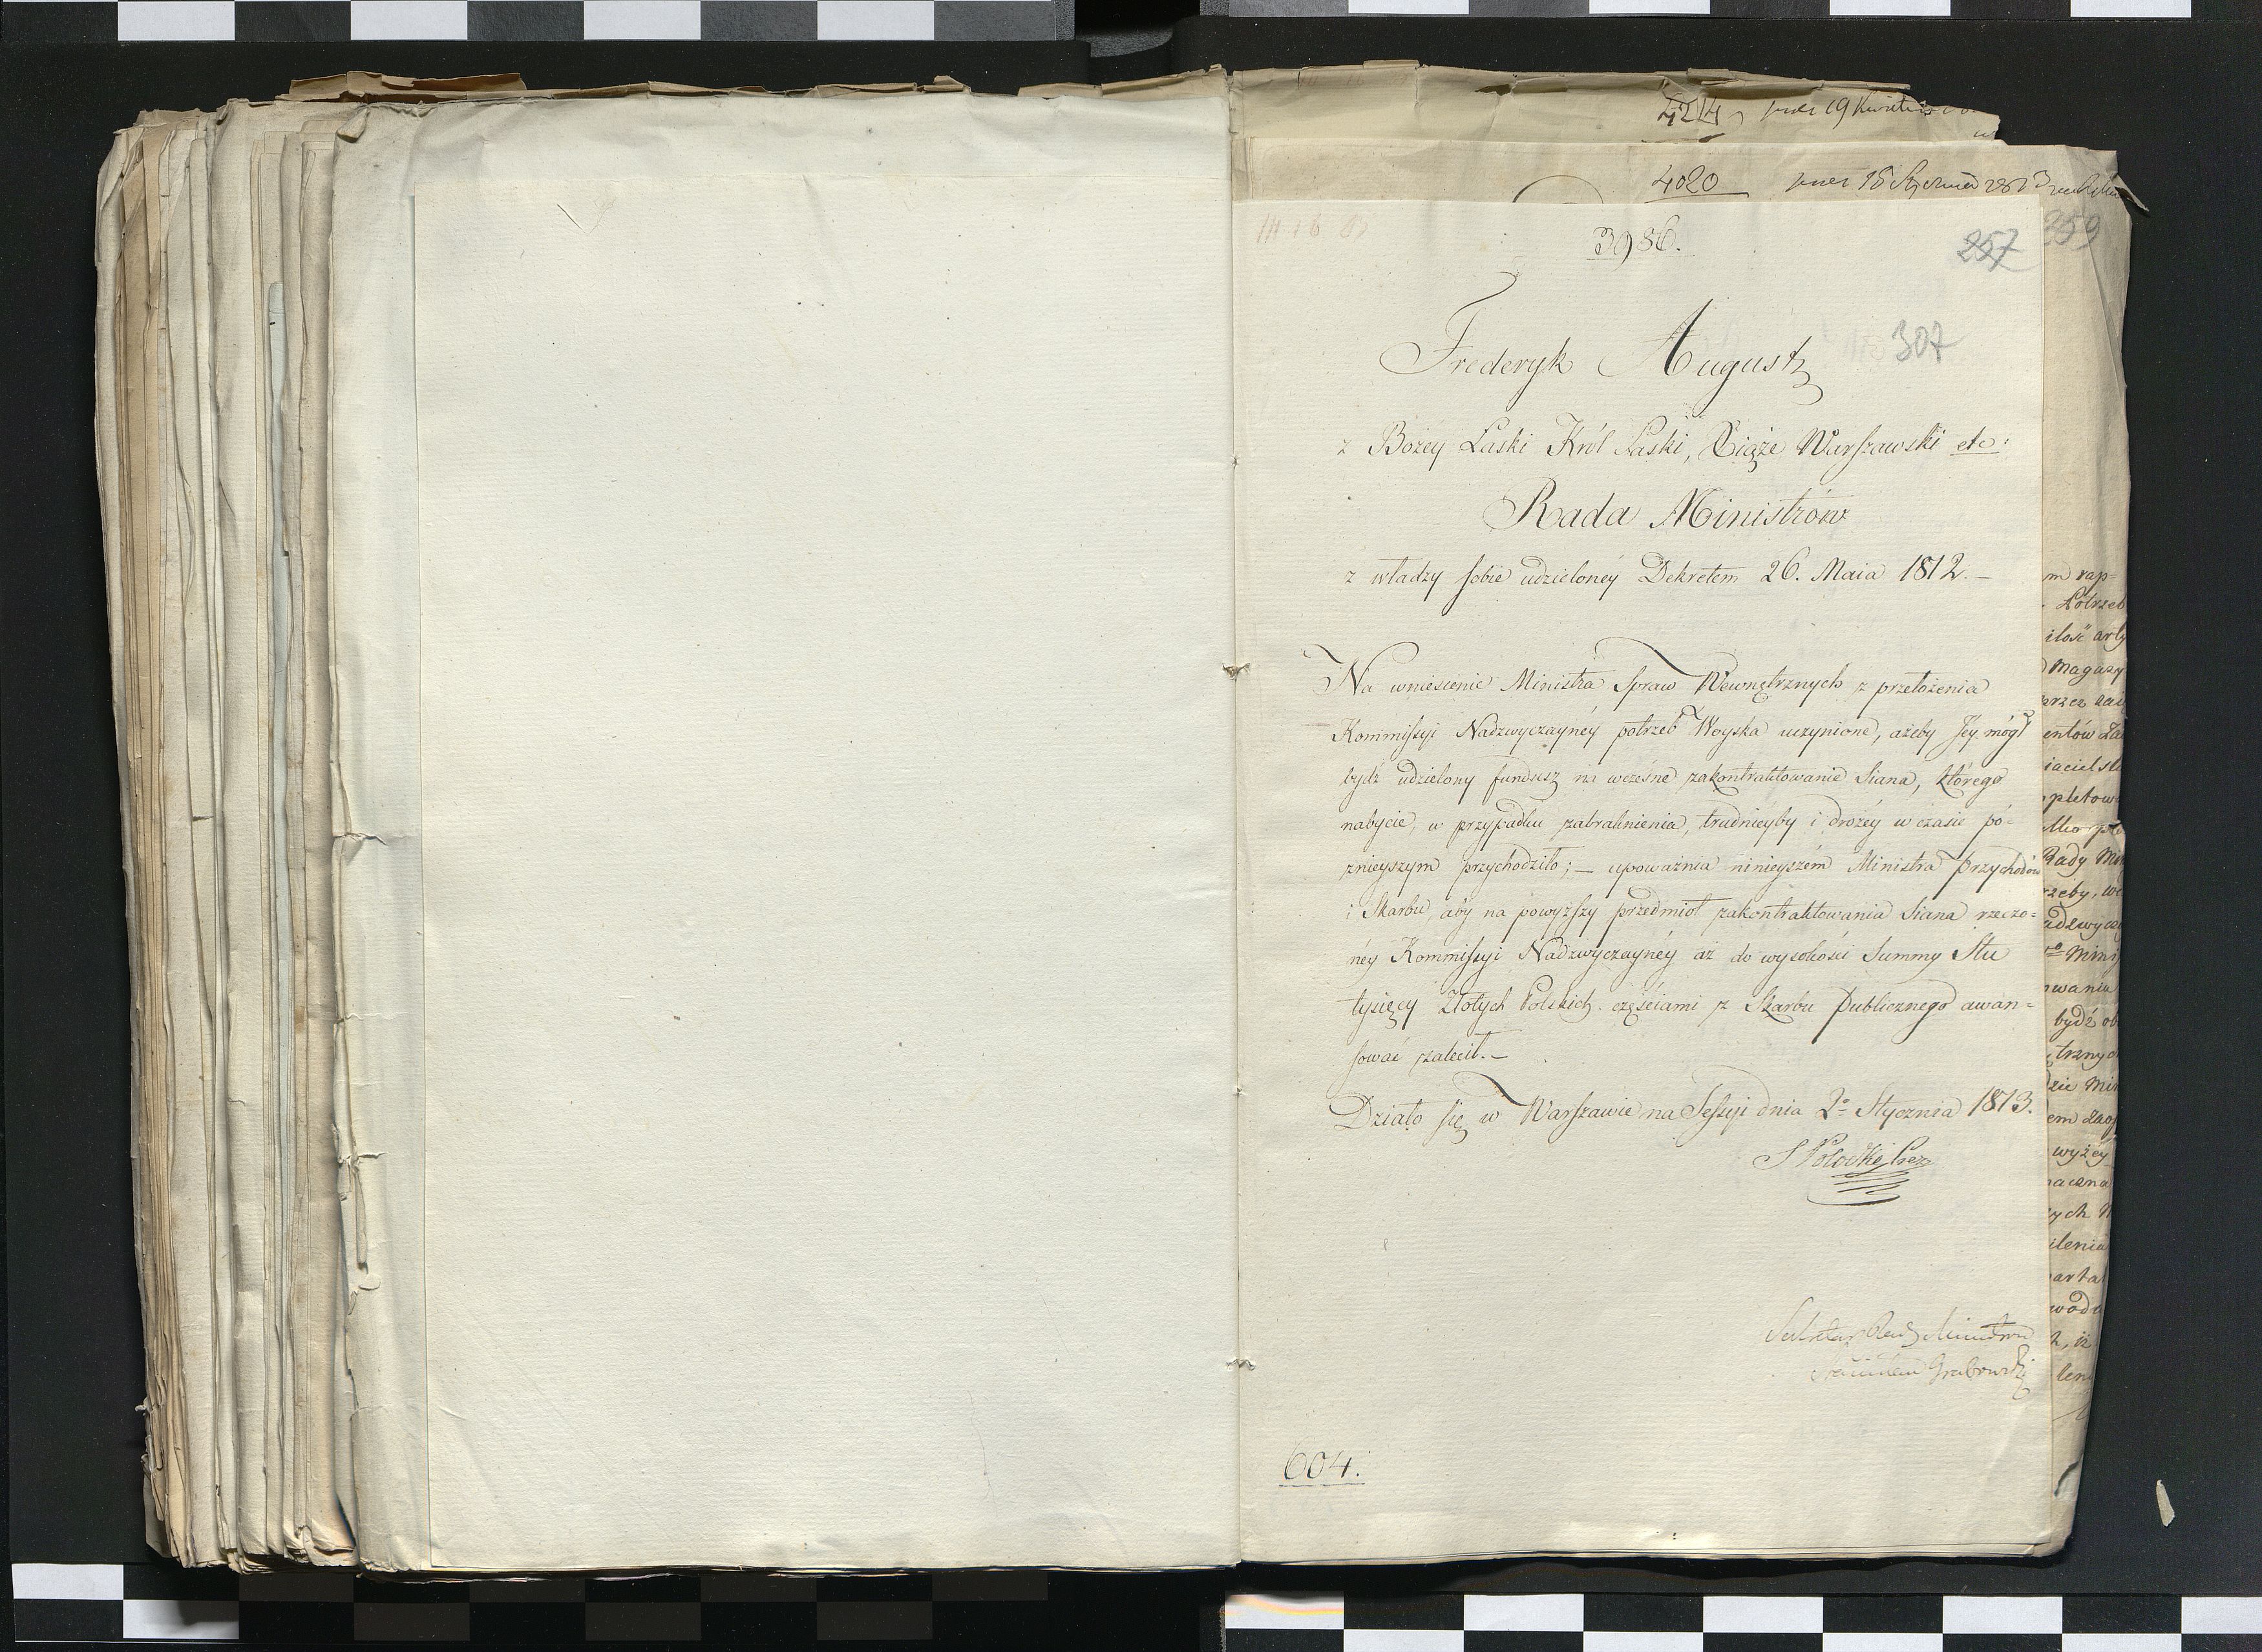 4214
19 Kwietnia
4020
3986.
257
359
307
Fryderyk August
z Bożey Łaski Król Saski, Xiąże Warszawski etc:
Rada Ministrów
z władzy sobie udzielonéy Dekretem 26. Maia 1812. –
Na wniesienie Ministra Spraw Wewnętrznych z przełożenia
Kommissyi Nadzwyczaynéy potrzeb Woyska uczynione, ażeby Jey mógł
bydź udzielony fundusz na wcześne zakontraktowanie Siana, którego
nabycie, w przypadku zabraknienia, trudnieyby i drożéy w czasie pó=
znieyszym przychodziło; – upoważnia ninieyszém Ministra Przychodów
i Skarbu, aby na powyższy przedmiot zakontraktowania Siana rzeczo=
néy Kommissyi Nadzwyczaynéy aż do wysokości Summy Stu
tysięcy Złotych Polskich częściami z Skarbu Publicznego awan=
sować zalecił. –
Działo się w Warszawie na Sessyi dnia 2º Stycznia 1813.
S Potocki Prez
Sekretarz Rady Ministrów
Stanisław Grabowski
604.
m rap=
Potrzeb
ilość arty
Magazy
przez
entów
iaciels
pletow
Rady Min
rzeby, w
adzwycz
Mini
wania
bydź ob
trznych
zie Min
wyżéy
ych
ilenia